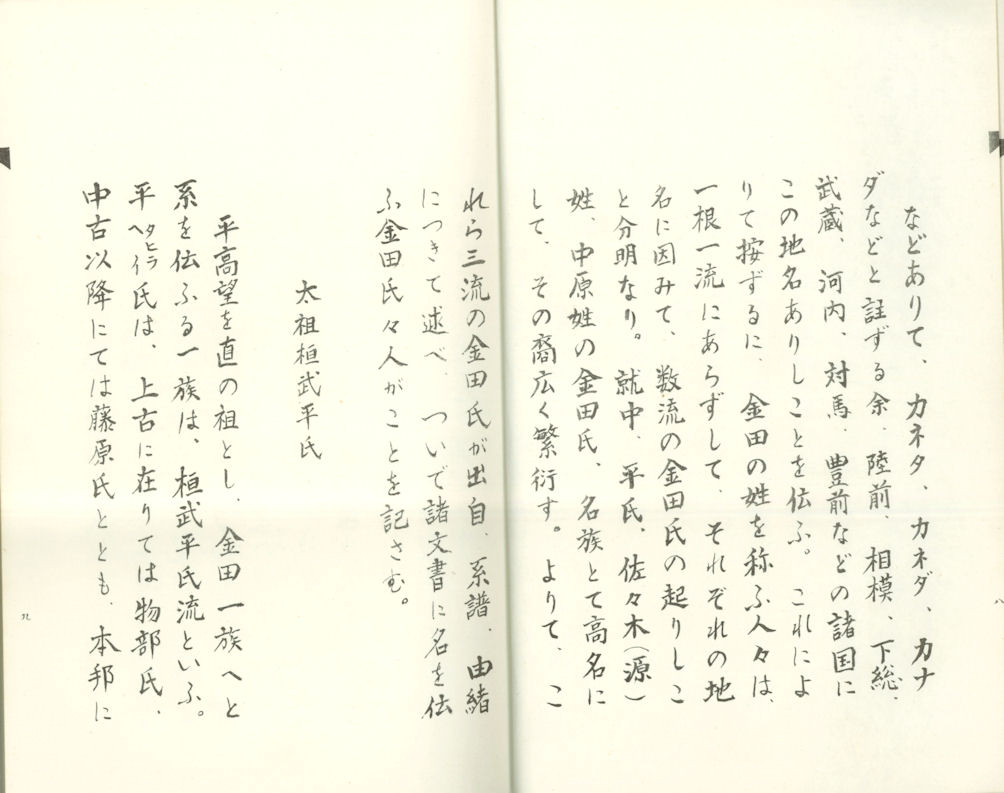 などありて、カネタ、カネダ、カナ
ダなどと註ずる余、陸前、相模、下総、
武蔵、河内、対馬、豊前などの諸国に
この地名ありしことを伝ふ。これによ
りて按ずるに、金田の姓を称ふ人々は、
一根一流にあらずして、それぞれの地
名に因みて、数流の金田氏の起りしこ
と分明なり。就中、平氏、佐々木(源)
姓、中原姓の金田氏、名族とて高名に
して、その裔広く繁衍す。よりて、こ
八
れら三流の金田氏が出自、系譜、由緒
につきて述べ、ついで諸文書に名を伝
ふ金田氏々人がことを記さむ。
太祖桓武平氏
平高望を直の祖とし、金田一族へと
系を伝ふる一族は、桓武平氏流といふ。
平氏は、上古に在りては物部氏、
タヒラ
中古以降にては藤原氏ととも、本邦に
九